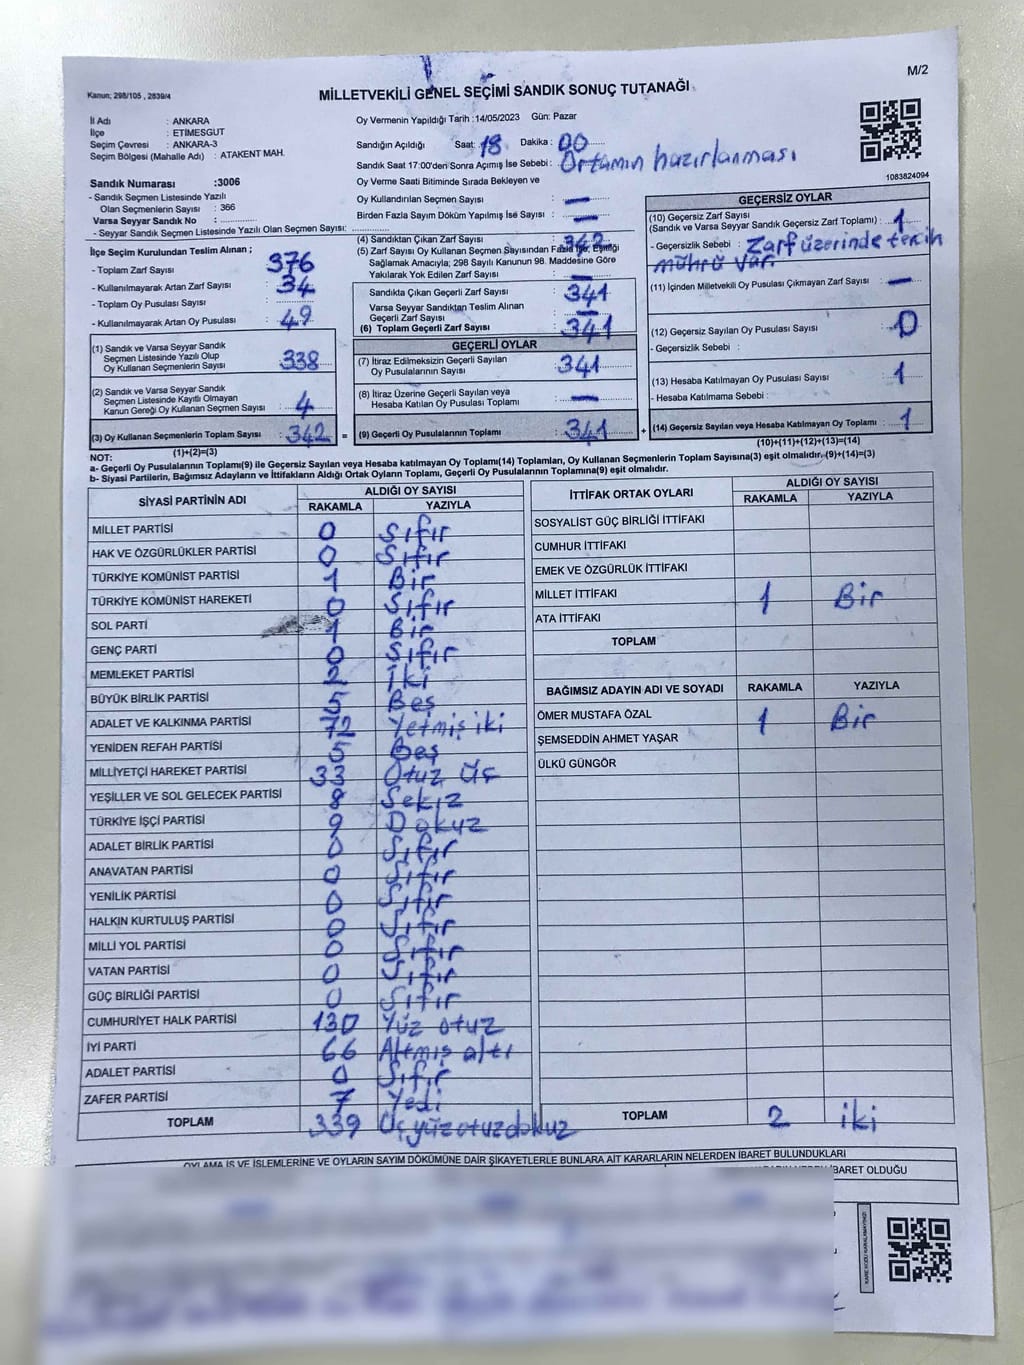 M/2
Kanun; 298/105 , 2839/4
MİLLETVEKİLİ GENEL SEÇİMİ SANDIK SONUÇ TUTANAĞI
İl Adı : ANKARA
İlçe : ETİMESGUT
Seçim Çevresi : ANKARA-3
Seçim Bölgesi (Mahalle Adı) : ATAKENT MAH.
Oy Vermenin Yapıldığı Tarih :14/05/2023 Gün: Pazar
Sandığın Açıldığı Saat: 18 Dakika : 00
Sandık Saat 17:00'den Sonra Açımış İse Sebebi : Ortamın hazırlanması
1083824094
Sandık Numarası :3006
- Sandık Seçmen Listesinde Yazılı
Olan Seçmenlerin Sayısı : 366
Varsa Seyyar Sandık No :
- Seyyar Seçmen Listesinde Yazılı Olan Seçmen Sayısı:
Oy Verme Saati Bitiminde Sırada Bekleyen ve
Oy Kullandırılan Seçmen Sayısı : —
Birden Fazla Sayım Döküm Yapılmış İse Sayısı : —
İlçe Seçim Kurulundan Teslim Alınan ;
- Toplam Zarf Sayısı : 376
- Kullanılmayarak Artan Zarf Sayısı : 34
- Toplam Oy Pusulası Sayısı :
- Kullanılmayarak Artan Oy Pusulası : 49
(1) Sandık ve Varsa Seyyar Sandık
Seçmen Listesinde Yazılı Olup
Oy Kullanan Seçmenlerin Sayısı : 338
(2) Sandık ve Varsa Seyyar Sandık
Seçmen Listesinde Kayıtlı Olmayan
Kanun Gereği Oy Kullanan Seçmen Sayısı : 4
(3) Oy Kullanan Seçmenlerin Toplam Sayısı : 342
(1)+(2)=(3)
(4) Sandıktan Çıkan Zarf Sayısı : 342
(5) Zarf Sayısı Oy Kullanan Seçmen Sayısından Fazla İse, Eşitliği
Sağlamak Amacıyla; 298 Sayılı Kanunun 98. Maddesine Göre
Yakılarak Yok Edilen Zarf Sayısı : —
Sandıkta Çıkan Geçerli Zarf Sayısı : 341
Varsa Seyyar Sandıktan Teslim Alınan
Geçerli Zarf Sayısı : —
(6) Toplam Geçerli Zarf Sayısı : 341
GEÇERLİ OYLAR
(7) İtiraz Edilmeksizin Geçerli Sayılan
Oy Pusulalarının Sayısı : 341
(8) İtiraz Üzerine Geçerli Sayılan veya
Hesaba Katılan Oy Pusulası Toplamı : —
= (9) Geçerli Oy Pusulalarının Toplamı : 341 +
GEÇERSİZ OYLAR
(10) Geçersiz Zarf Sayısı
(Sandık ve Varsa Seyyar Sandık Geçersiz Zarf Toplamı) : 1
- Geçersizlik Sebebi : Zarf üzerinde tercih
mührü var.
(11) İçinden Milletvekili Oy Pusulası Çıkmayan Zarf Sayısı : —
(12) Geçersiz Sayılan Oy Pusulası Sayısı : 0
- Geçersizlik Sebebi :
(13) Hesaba Katılmayan Oy Pusulası Sayısı : 1
- Hesaba Katılmama Sebebi :
(14) Geçersiz Sayılan veya Hesaba Katılmayan Oy Toplamı : 1
(10)+(11)+(12)+(13)=(14)
NOT:
a- Geçerli Oy Pusulalarının Toplamı(9) ile Geçersiz Sayılan veya Hesaba katılmayan Oy Toplamı(14) Toplamları, Oy Kullanan Seçmenlerin Toplam Sayısına(3) eşit olmalıdır.(9)+(14)=(3)
b- Siyasi Partilerin, Bağımsız Adayların ve İttifakların Aldığı Ortak Oyların Toplamı, Geçerli Oy Pusulalarının Toplamına(9) eşit olmalıdır.
SİYASİ PARTİNİN ADI ALDIĞI OY SAYISI
RAKAMLA YAZIYLA
MİLLET PARTİSİ 0 Sıfır
HAK VE ÖZGÜRLÜKLER PARTİSİ 0 Sıfır
TÜRKİYE KOMÜNİST PARTİSİ 1 Bir
TÜRKİYE KOMÜNİST HAREKETİ 0 Sıfır
SOL PARTİ 1 Bir
GENÇ PARTİ 0 Sıfır
MEMLEKET PARTİSİ 2 İki
BÜYÜK BİRLİK PARTİSİ 5 Beş
ADALET VE KALKINMA PARTİSİ 72 Yetmiş iki
YENİDEN REFAH PARTİSİ 5 Beş
MİLLİYETÇİ HAREKET PARTİSİ 33 Otuz Üç
YEŞİLLER VE SOL GELECEK PARTİSİ 8 Sekiz
TÜRKİYE İŞÇİ PARTİSİ 9 Dokuz
ADALET BİRLİK PARTİSİ 0 Sıfır
ANAVATAN PARTİSİ 0 Sıfır
YENİLİK PARTİSİ 0 Sıfır
HALKIN KURTULUŞ PARTİSİ 0 Sıfır
MİLLİ YOL PARTİSİ 0 Sıfır
VATAN PARTİSİ 0 Sıfır
GÜÇ BİRLİĞİ PARTİSİ 0 Sıfır
CUMHURİYET HALK PARTİSİ 130 Yüz otuz
İYİ PARTİ 66 Altmış altı
ADALET PARTİSİ 0 Sıfır
ZAFER PARTİSİ 7 Yedi
TOPLAM 339 Üçyüzotuzdokuz
İTTİFAK ORTAK OYLARI ALDIĞI OY SAYISI
RAKAMLA YAZIYLA
SOSYALİST GÜÇ BİRLİĞİ İTTİFAKI
CUMHUR İTTİFAKI
EMEK VE ÖZGÜRLÜK İTTİFAKI
MİLLET İTTİFAKI 1 Bir
ATA İTTİFAKI
TOPLAM
BAĞIMSIZ ADAYIN ADI VE SOYADI RAKAMLA YAZIYLA
ÖMER MUSTAFA ÖZAL 1 Bir
ŞEMSEDDİN AHMET YAŞAR
ÜLKÜ GÜNGÖR
TOPLAM 2 iki
OYLAMA İŞ VE İŞLEMLERİNE VE OYLARIN SAYIM DÖKÜMÜNE DAİR ŞİKAYETLERLE BUNLARA AİT KARARLARIN NELERDEN İBARET BULUNDUKLARI
İBARET OLDUĞU
KARE KODU KARALAMAYINIZ!